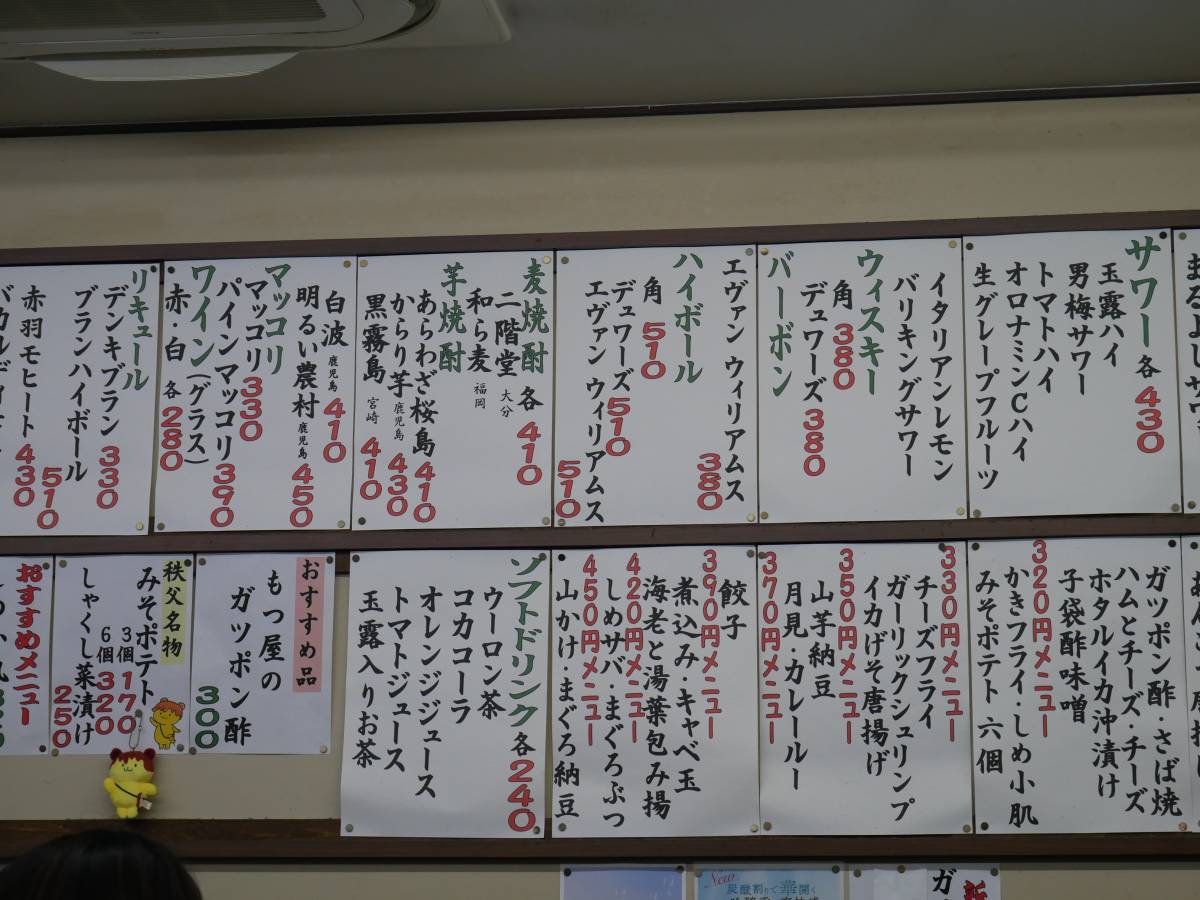 サワー 各430
玉露ハイ
男梅サワー
トマトハイ
オロナミンCハイ
生グレープフルーツ
イタリアンレモン
バリキングサワー
ウィスキー
角 380
デュワーズ 380
バーボン
エヴァン ウィリアムス 380
ハイボール
角 510
デュワーズ 510
エヴァン ウィリアムス 510
麦焼酎 各410
二階堂 大分
和ら麦 福岡
芋焼酎
あらわざ桜島 410
からり芋 鹿児島 430
黒霧島 宮崎 410
白波 鹿児島 410
明るい農村 鹿児島 450
マッコリ
マッコリ 330
パインマッコリ 390
ワイン(グラス)
赤・白 各280
リキュール
デンキブラン 330
ブランハイボール 510
赤羽モヒート 430
ガツポン酢・さば焼
ハムとチーズ・チーズ
ホタルイカ沖漬け
子袋酢味噌
320円メニュー
かきフライ・しめ小肌
みそポテト 六個
330円メニュー
チーズフライ
ガーリックシュリンプ
イカげそ唐揚げ
350円メニュー
山芋納豆
月見・カレールー
370円メニュー
餃子
390円メニュー
煮込み・キャベ玉
海老と湯葉包み揚
420円メニュー
しめサバ・まぐろぶつ
450円メニュー
山かけ・まぐろ納豆
ソフトドリンク 各240
ウーロン茶
コカコーラ
オレンジジュース
トマトジュース
玉露入りお茶
おすすめ品
もつ屋の
ガツポン酢
300
秩父名物
みそポテト
3個 170
6個 320
しゃくし菜漬け
250
おすすめメニュー
New
炭酸割りで華開く
新
ガ